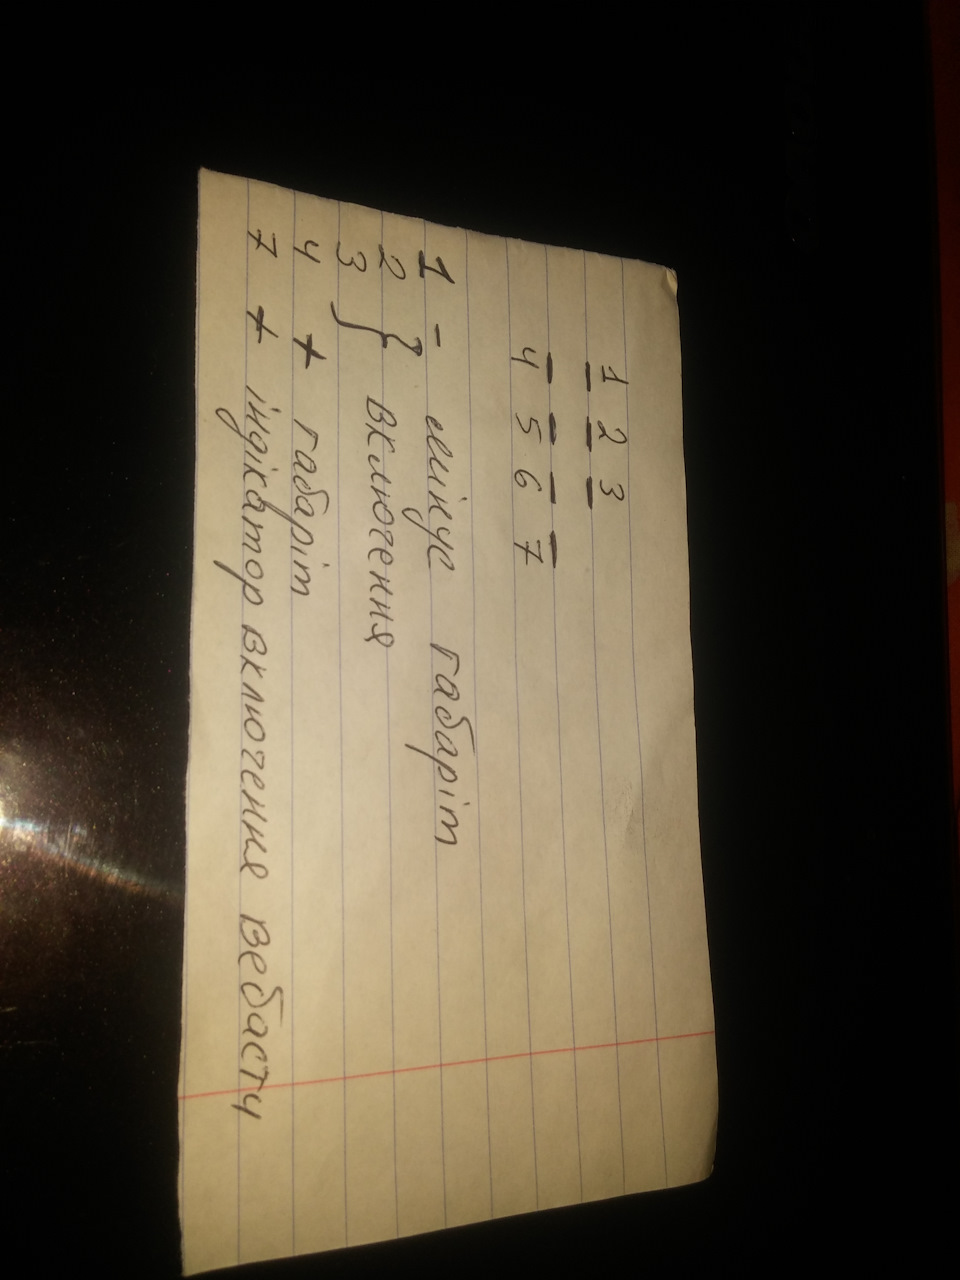 1 2 3
4 5 6 7
1 - мінус габаріт
2
3 } включення
4 + габаріт
7 + індікатор включення вебасти